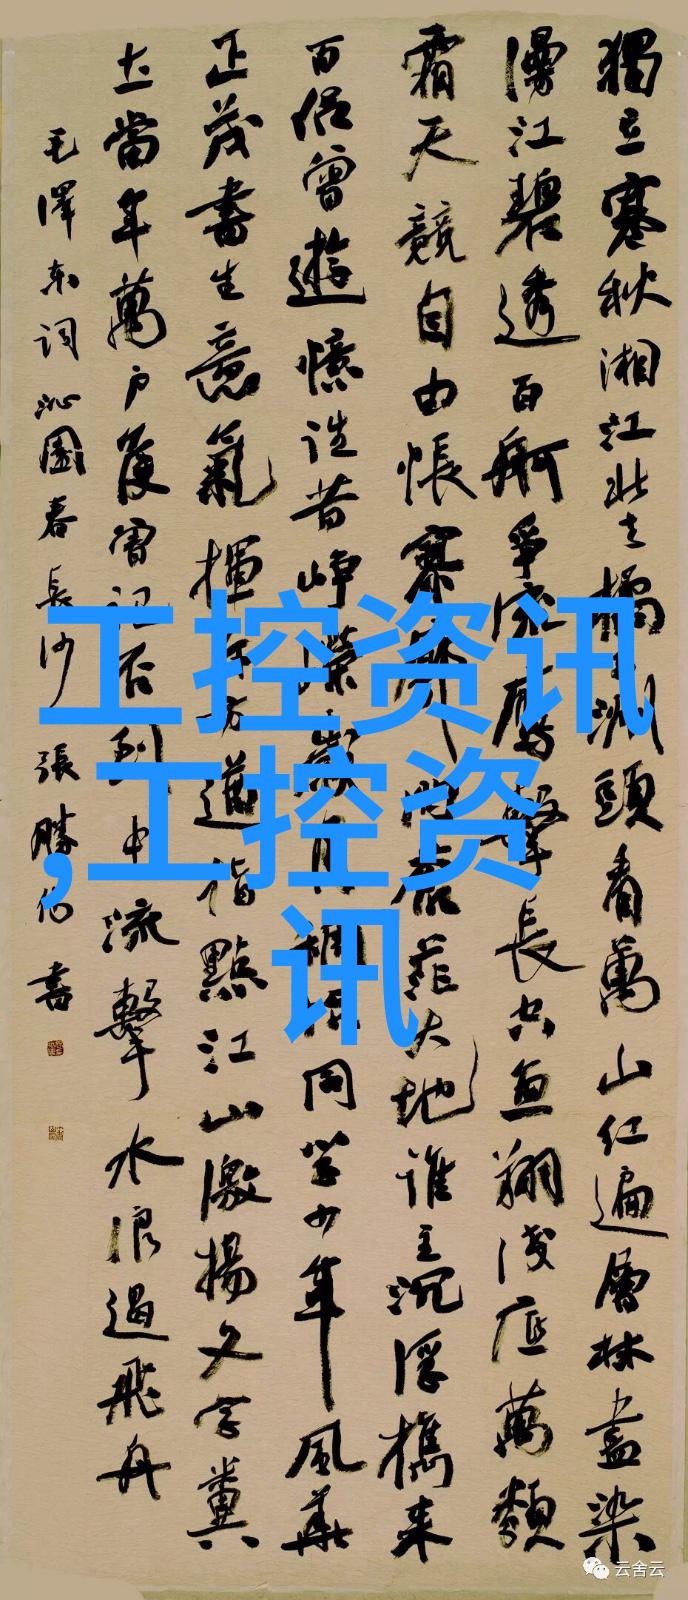 獨立寒秋湘江北去橘子洲頭看萬山紅遍層林盡染
漫江碧透百舸爭流鷹擊長空魚翔淺底萬類
霜天競自由悵寥廓問蒼茫大地誰主沉浮攜來
百侶曾遊憶往昔崢嶸歲月稠恰同學少年風華
正茂書生意氣揮斥方遒指點江山激揚文字糞
土當年萬戶侯曾記否到中流擊水浪遏飛舟
毛澤東詞沁園春長沙 張勝伯書
工控资讯
,工控资
讯
云舍云